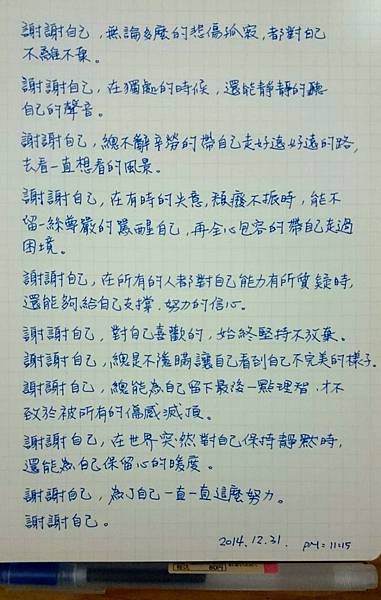 謝謝自己，無論多麼的悲傷孤寂，都對自己
不離不棄。
謝謝自己，在獨處的時候，還能靜靜的聽
自己的聲音。
謝謝自己，總不辭辛勞的帶自己走好遠好遠的路，
去看一直想看的風景。
謝謝自己，在有時的失意，頹廢不振時，能不
留一絲尊嚴的罵醒自己，再全心包容的帶自己走過
困境。
謝謝自己，在所有的人都對自己能力有所質疑時，
還能夠給自己支撐，努力的信心。
謝謝自己，對自己喜歡的，始終堅持不放棄。
謝謝自己，總是不隱瞞讓自己看到自己不完美的樣子。
謝謝自己，總能為自己留下最後一點理智，才不
致於被所有的傷感滅頂。
謝謝自己，在世界突然對自己保持靜默時，
還能為自己保留心的暖度。
謝謝自己，為了自己一直一直這麼努力。
謝謝自己。
2014.12.31. PM=11:15